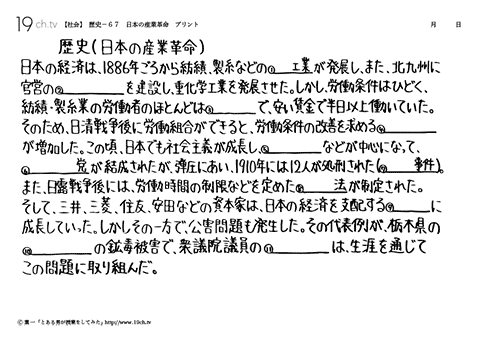 19 ch.tv 【社会】 歴史－67 日本の産業革命 プリント 月 日
歴史(日本の産業革命)
日本の経済は、1886年ごろから紡績、製糸などの① 工業が発展し、また、北九州に
官営の② を建設し、重化学工業を発展させた。しかし、労働条件はひどく、
紡績・製糸業の労働者のほとんどは③ で、安い賃金で半日以上働いていた。
そのため、日清戦争後に労働組合ができると、労働条件の改善を求める④
が増加した。この頃、日本でも社会主義が成長し、⑤ などが中心になって、
⑥ 党が結成されたが、弾圧にあい、1910年には12人が処刑された(⑦ 事件)。
また、日露戦争後には、労働時間の制限などを定めた⑧ 法が制定された。
そして、三井、三菱、住友、安田などの資本家は、日本の経済を支配する⑨ に
成長していった。しかしその一方で、公害問題も発生した。その代表例が、栃木県の
⑩ の鉱毒被害で、衆議院議員の⑪ は、生涯を通じて
この問題に取り組んだ。
Ⓒ 葉一「とある男が授業をしてみた」http://www.19ch.tv